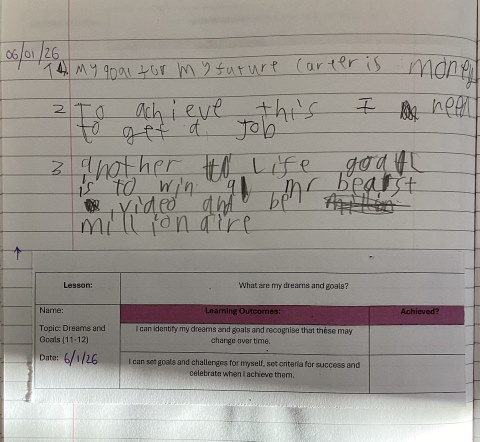 06/01/26
1 My goal for my future career is money
2 To achieve this I need
to get a job
3 another life goal
is to win a mr beast
video and be
millionaire
Lesson: What are my dreams and goals?
Name: Learning Outcomes: Achieved?
Topic: Dreams and Goals (11-12) I can identify my dreams and goals and recognise that these may change over time.
Date: 6/1/26 I can set goals and challenges for myself, set criteria for success and celebrate when I achieve them.